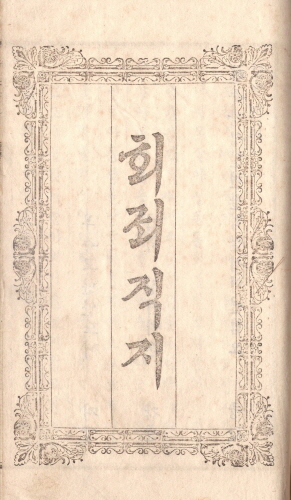 회죄직지